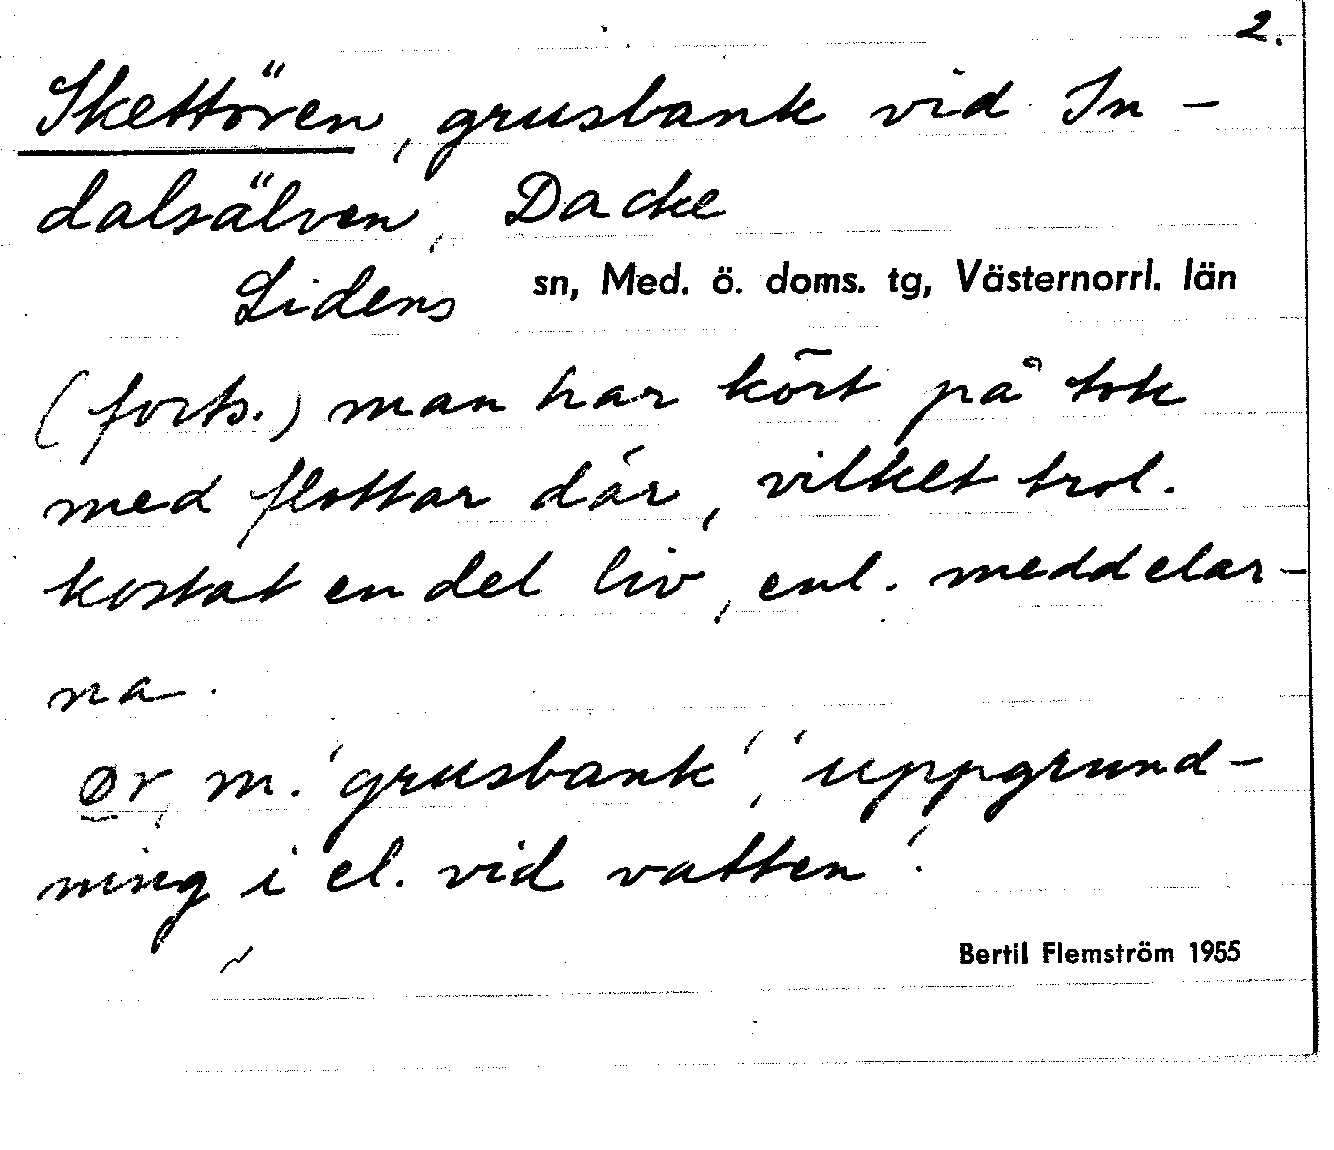 2.
Skettören, grusbank vid In-
dalsälven, Dacke
Lidens sn, Med. ö. doms. tg, Västernorrl. län
(forts.) man har kört på tok
med flottar där, vilket trol.
kostat en del liv, enl. meddelar-
na.
ør, m. 'grusbank', 'uppgrund-
ning i el. vid vatten'.
Bertil Flemström 1955